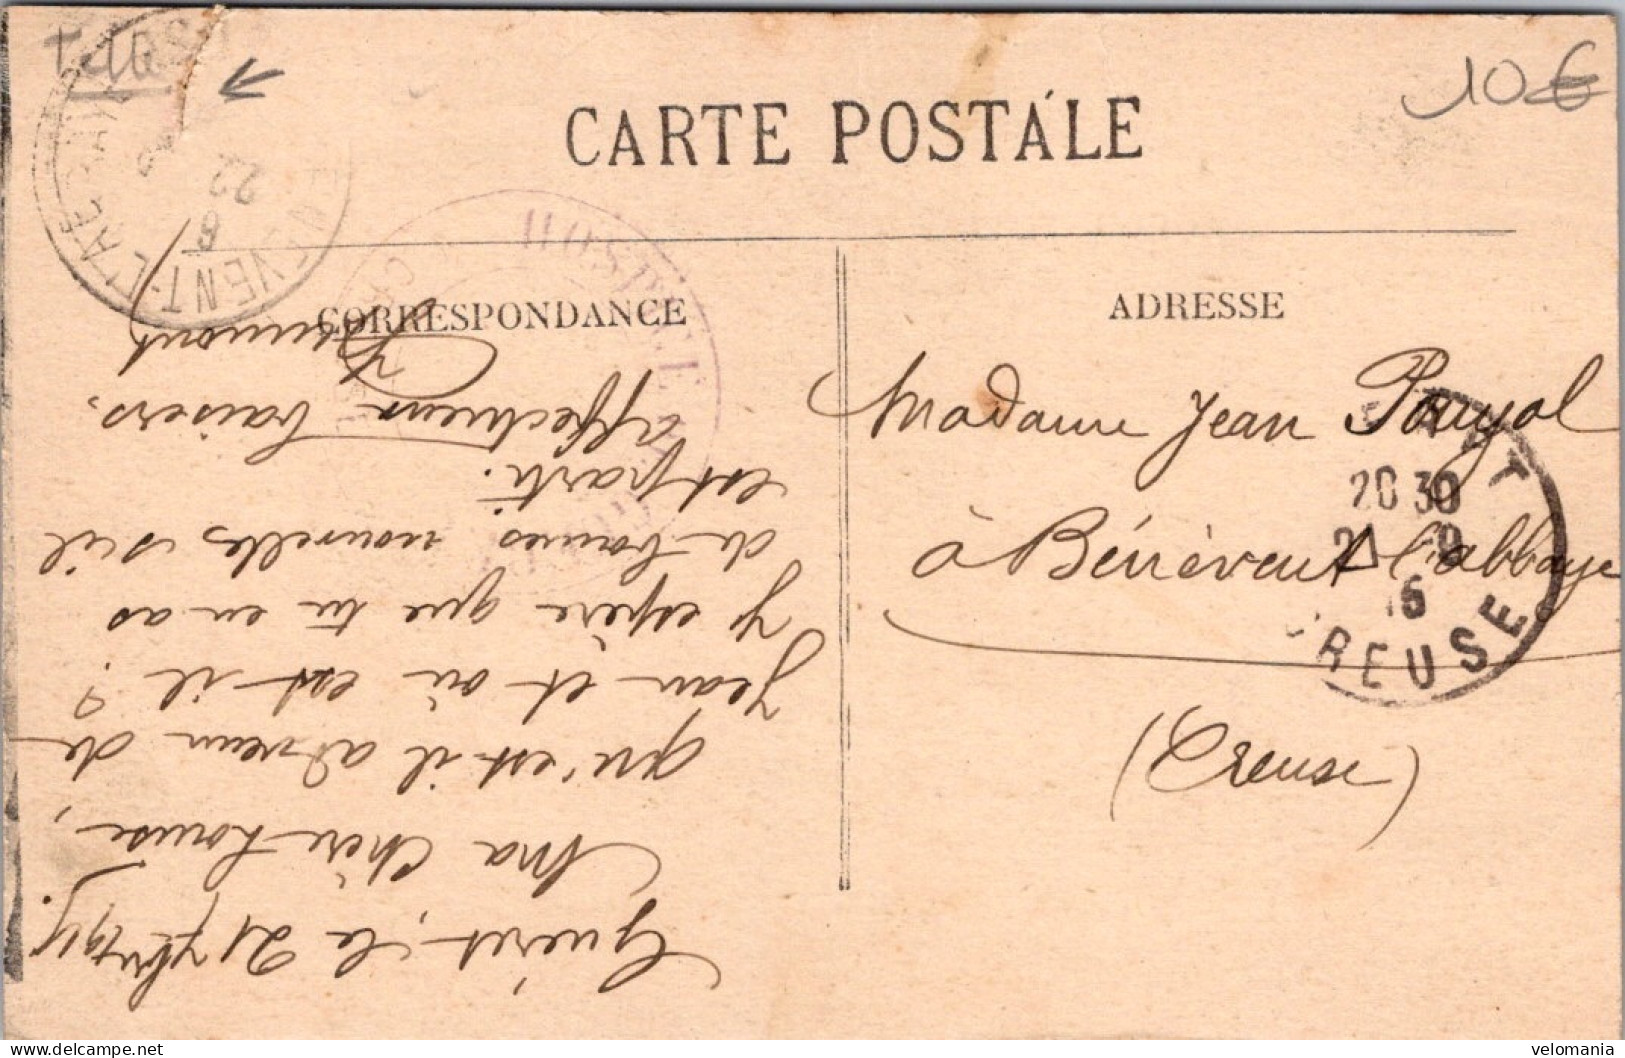 10€
CARTE POSTALE
CORRESPONDANCE
ADRESSE
Madame Jean Pouyol
à Bénévent l'abbaye
(Creuse)
20 30
21 -9
15
CREUSE
BÉNÉVENT-L'ABBAYE
22
HOSPICE
Guéret, le 21 7bre 1915.
Ma Chère Louise,
qu'est-il advenu de
Jean et où est-il ?
J'espère que tu en as
de bonnes nouvelles s'il
est parti.
Affectueux baisers.
velomania